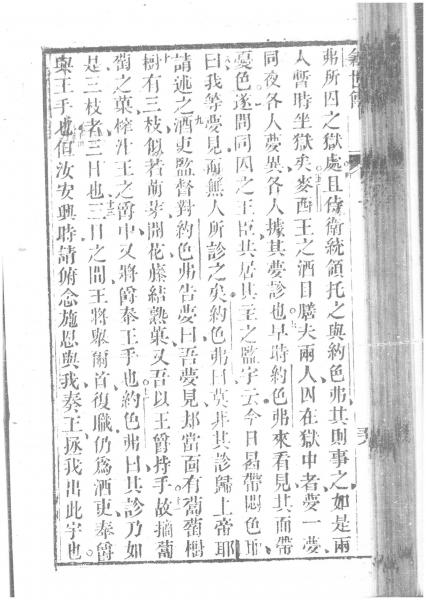 弗所囚之獄處且侍衛統領托之與約色弗其則事之如是兩
人暫時坐獄矣麥西王之酒目膳夫兩人囚在獄中者夢一夢
同夜各人夢異各人據其夢診也早時約色弗來看見其面帶
憂色遂問同囚之王臣共居其主之監宇云今日曷帶悶色耶
曰我等夢見而無人所診之矣約色弗曰莫非其診歸上帝耶
請述之酒吏監督對約色弗告夢曰吾夢見當面有葡萄樹
樹有三枝似若萌芽開花藤結熟菓又吾以王爵持手故摘葡
萄之菓榨汁王之爵中又將爵奉王手也約色弗曰其診乃如
是三枝者三日也三日之間王將舉爾首復職仍爲酒吏奉爵
與王手也但汝安興時請俯念施恩與我奏王拯我出此宇也